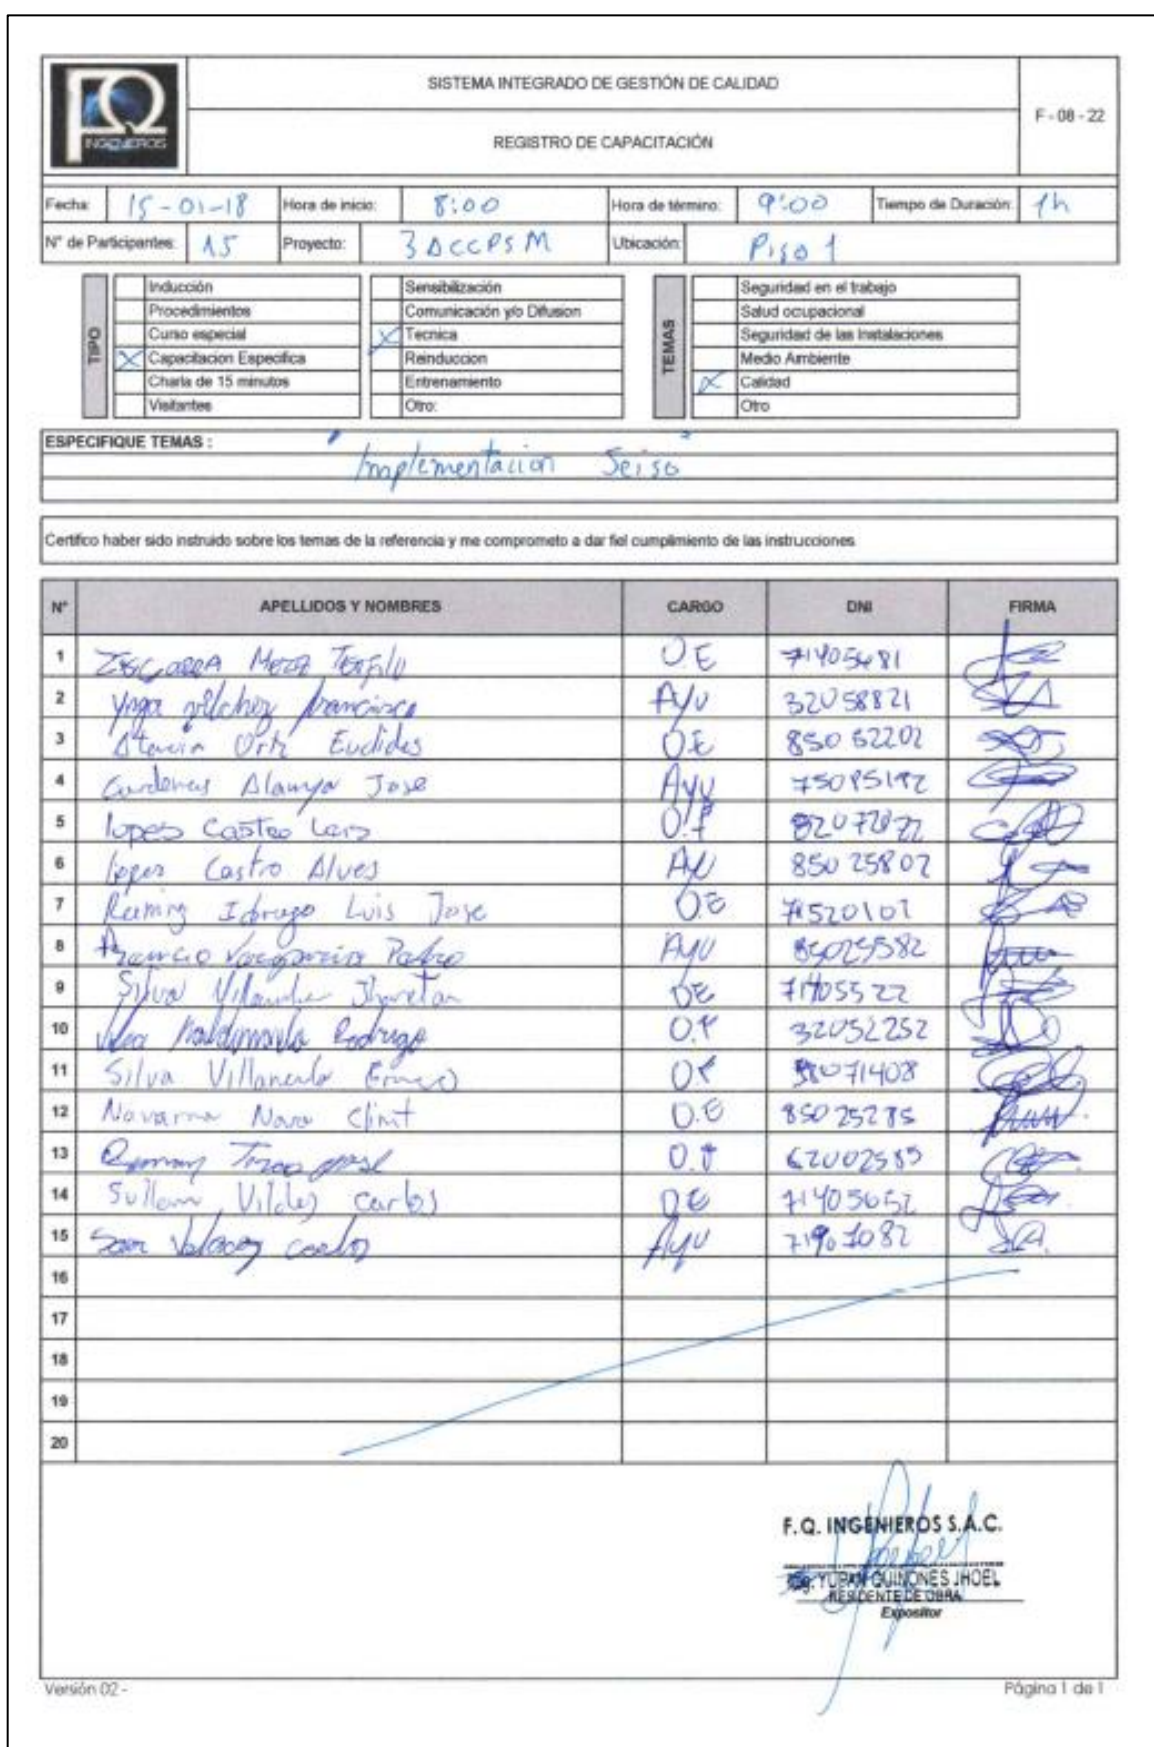 FQ
INGENIEROS
SISTEMA INTEGRADO DE GESTIÓN DE CALIDAD
REGISTRO DE CAPACITACIÓN
F - 08 - 22
Fecha: 15-01-18 Hora de inicio: 8:00 Hora de término: 9:00 Tiempo de Duración: 1h
N° de Participantes: 15 Proyecto: 3DCCPSM Ubicación: Piso 1
TIPO
Inducción
Procedimientos
Curso especial
X Capacitacion Especifica
Charla de 15 minutos
Visitantes
Sensibilización
Comunicación y/o Difusion
X Tecnica
Reinduccion
Entrenamiento
Otro:
TEMAS
Seguridad en el trabajo
Salud ocupacional
Seguridad de las Instalaciones
Medio Ambiente
X Calidad
Otro
ESPECIFIQUE TEMAS :
"Implementacion Seiso"
Certifico haber sido instruido sobre los temas de la referencia y me comprometo a dar fiel cumplimiento de las instrucciones
N° APELLIDOS Y NOMBRES CARGO DNI FIRMA
1 Meza OE 71405481
2 Ynga Vilchez Francisco Ayu 32058821
3 Ortz Euclides O.E 85052202
4 Cardenas Alamya Jose Ayu
5 lopes Castro Luis
6 Castro Alves Ay 85025802
7 Luis Jose O.E
8 Pedro Ayu 85025582
9 Silva OE
10 Maldonado Rodrigo O.P 32052252
11 Silva
12 Navarro Clint O.E 85025285
13 62002585
14 Carlos OE 71405652
15 Carlos Ayu
16
17
18
19
20
F.Q. INGENIEROS S.A.C.
Ing. YUPAN QUINONES JHOEL
RESIDENTE DE OBRA
Expositor
Versión 02 -
Página 1 de 1